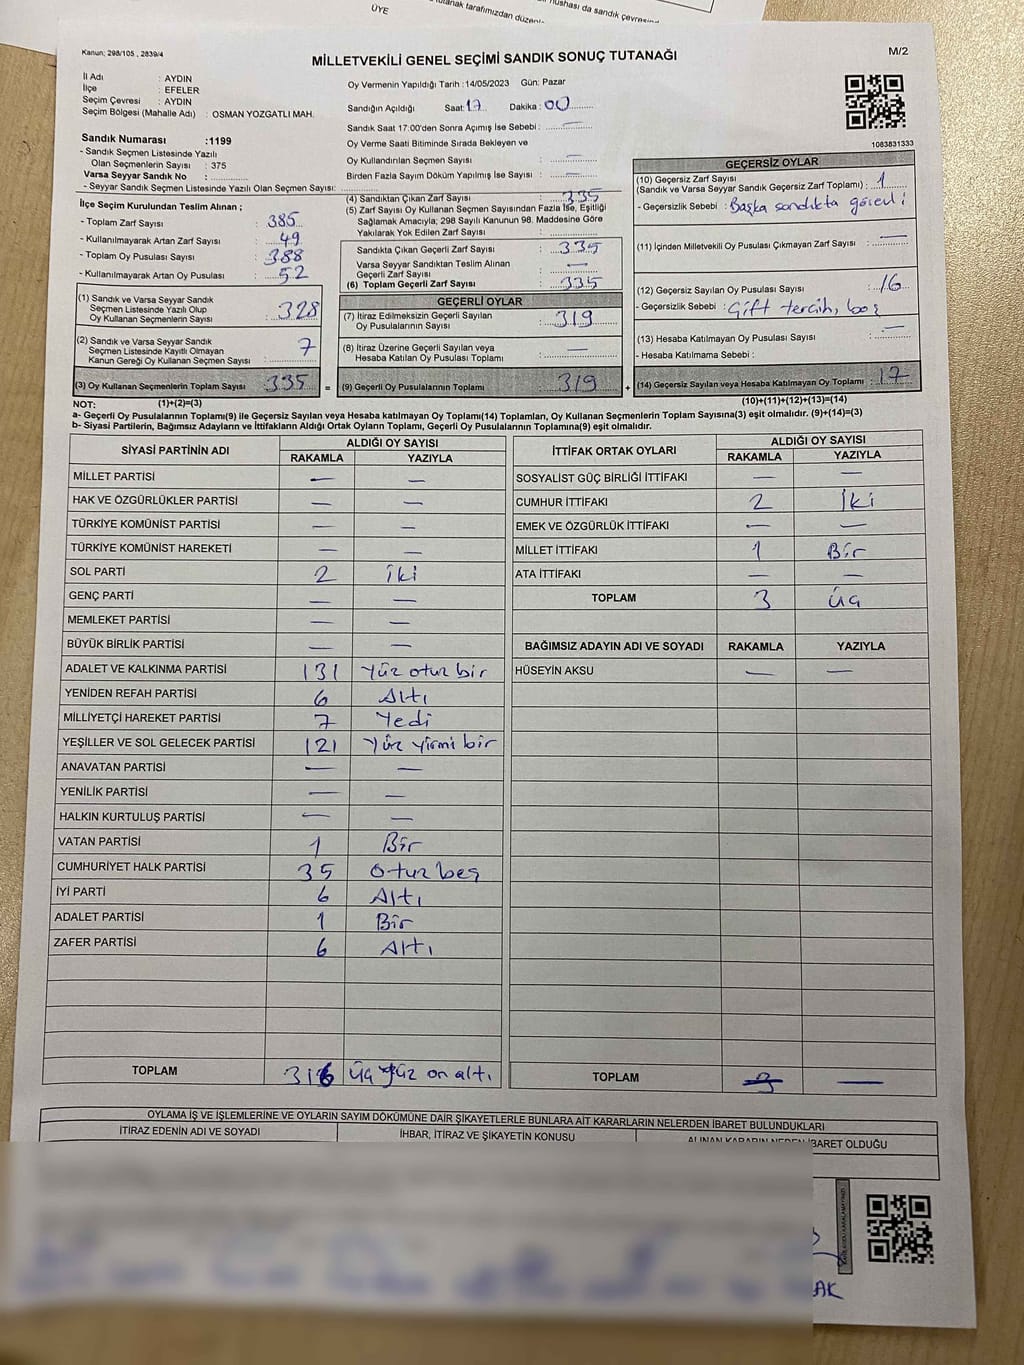 ÜYE
Kanun; 298/105 , 2839/4
MİLLETVEKİLİ GENEL SEÇİMİ SANDIK SONUÇ TUTANAĞI
M/2
İl Adı : AYDIN
İlçe : EFELER
Seçim Çevresi : AYDIN
Seçim Bölgesi (Mahalle Adı) : OSMAN YOZGATLI MAH.
Sandık Numarası :1199
- Sandık Seçmen Listesinde Yazılı
Olan Seçmenlerin Sayısı : 375
Varsa Seyyar Sandık No :
- Seyyar Sandık Seçmen Listesinde Yazılı Olan Seçmen Sayısı:
Oy Vermenin Yapıldığı Tarih :14/05/2023 Gün: Pazar
Sandığın Açıldığı Saat: 17 Dakika : 00
Sandık Saat 17:00'den Sonra Açımış İse Sebebi : —
Oy Verme Saati Bitiminde Sırada Bekleyen ve
Oy Kullandırılan Seçmen Sayısı : —
Birden Fazla Sayım Döküm Yapılmış İse Sayısı : —
1083831333
İlçe Seçim Kurulundan Teslim Alınan ;
- Toplam Zarf Sayısı : 385
- Kullanılmayarak Artan Zarf Sayısı : 49
- Toplam Oy Pusulası Sayısı : 388
- Kullanılmayarak Artan Oy Pusulası : 52
(1) Sandık ve Varsa Seyyar Sandık
Seçmen Listesinde Yazılı Olup
Oy Kullanan Seçmenlerin Sayısı : 328
(2) Sandık ve Varsa Seyyar Sandık
Seçmen Listesinde Kayıtlı Olmayan
Kanun Gereği Oy Kullanan Seçmen Sayısı : 7
(3) Oy Kullanan Seçmenlerin Toplam Sayısı : 335 =
(4) Sandıktan Çıkan Zarf Sayısı : 335
(5) Zarf Sayısı Oy Kullanan Seçmen Sayısından Fazla İse, Eşitliği
Sağlamak Amacıyla; 298 Sayılı Kanunun 98. Maddesine Göre
Yakılarak Yok Edilen Zarf Sayısı :
Sandıkta Çıkan Geçerli Zarf Sayısı : 335
Varsa Seyyar Sandıktan Teslim Alınan
Geçerli Zarf Sayısı : —
(6) Toplam Geçerli Zarf Sayısı : 335
GEÇERLİ OYLAR
(7) İtiraz Edilmeksizin Geçerli Sayılan
Oy Pusulalarının Sayısı : 319
(8) İtiraz Üzerine Geçerli Sayılan veya
Hesaba Katılan Oy Pusulası Toplamı : —
(9) Geçerli Oy Pusulalarının Toplamı : 319 +
GEÇERSİZ OYLAR
(10) Geçersiz Zarf Sayısı
(Sandık ve Varsa Seyyar Sandık Geçersiz Zarf Toplamı) : 1
- Geçersizlik Sebebi : Başka sandıkta görevli
(11) İçinden Milletvekili Oy Pusulası Çıkmayan Zarf Sayısı : —
(12) Geçersiz Sayılan Oy Pusulası Sayısı : 16
- Geçersizlik Sebebi : Çift tercih, boş
(13) Hesaba Katılmayan Oy Pusulası Sayısı : —
- Hesaba Katılmama Sebebi :
(14) Geçersiz Sayılan veya Hesaba Katılmayan Oy Toplamı : 17
NOT: (1)+(2)=(3) (10)+(11)+(12)+(13)=(14)
a- Geçerli Oy Pusulalarının Toplamı(9) ile Geçersiz Sayılan veya Hesaba katılmayan Oy Toplamı(14) Toplamları, Oy Kullanan Seçmenlerin Toplam Sayısına(3) eşit olmalıdır. (9)+(14)=(3)
b- Siyasi Partilerin, Bağımsız Adayların ve İttifakların Aldığı Ortak Oyların Toplamı, Geçerli Oy Pusulalarının Toplamına(9) eşit olmalıdır.
SİYASİ PARTİNİN ADI ALDIĞI OY SAYISI
RAKAMLA YAZIYLA
MİLLET PARTİSİ — —
HAK VE ÖZGÜRLÜKLER PARTİSİ — —
TÜRKİYE KOMÜNİST PARTİSİ — —
TÜRKİYE KOMÜNİST HAREKETİ — —
SOL PARTİ 2 iki
GENÇ PARTİ — —
MEMLEKET PARTİSİ — —
BÜYÜK BİRLİK PARTİSİ — —
ADALET VE KALKINMA PARTİSİ 131 Yüz otuz bir
YENİDEN REFAH PARTİSİ 6 Altı
MİLLİYETÇİ HAREKET PARTİSİ 7 Yedi
YEŞİLLER VE SOL GELECEK PARTİSİ 121 Yüz yirmi bir
ANAVATAN PARTİSİ — —
YENİLİK PARTİSİ — —
HALKIN KURTULUŞ PARTİSİ — —
VATAN PARTİSİ 1 Bir
CUMHURİYET HALK PARTİSİ 35 Otuz beş
İYİ PARTİ 6 Altı
ADALET PARTİSİ 1 Bir
ZAFER PARTİSİ 6 Altı
TOPLAM 316 üç yüz on altı
İTTİFAK ORTAK OYLARI ALDIĞI OY SAYISI
RAKAMLA YAZIYLA
SOSYALİST GÜÇ BİRLİĞİ İTTİFAKI — —
CUMHUR İTTİFAKI 2 İki
EMEK VE ÖZGÜRLÜK İTTİFAKI — —
MİLLET İTTİFAKI 1 Bir
ATA İTTİFAKI — —
TOPLAM 3 üç
BAĞIMSIZ ADAYIN ADI VE SOYADI RAKAMLA YAZIYLA
HÜSEYİN AKSU — —
TOPLAM 3 —
OYLAMA İŞ VE İŞLEMLERİNE VE OYLARIN SAYIM DÖKÜMÜNE DAİR ŞİKAYETLERLE BUNLARA AİT KARARLARIN NELERDEN İBARET BULUNDUKLARI
İTİRAZ EDENİN ADI VE SOYADI İHBAR, İTİRAZ VE ŞİKAYETİN KONUSU ALINAN KARARIN NEDEN İBARET OLDUĞU